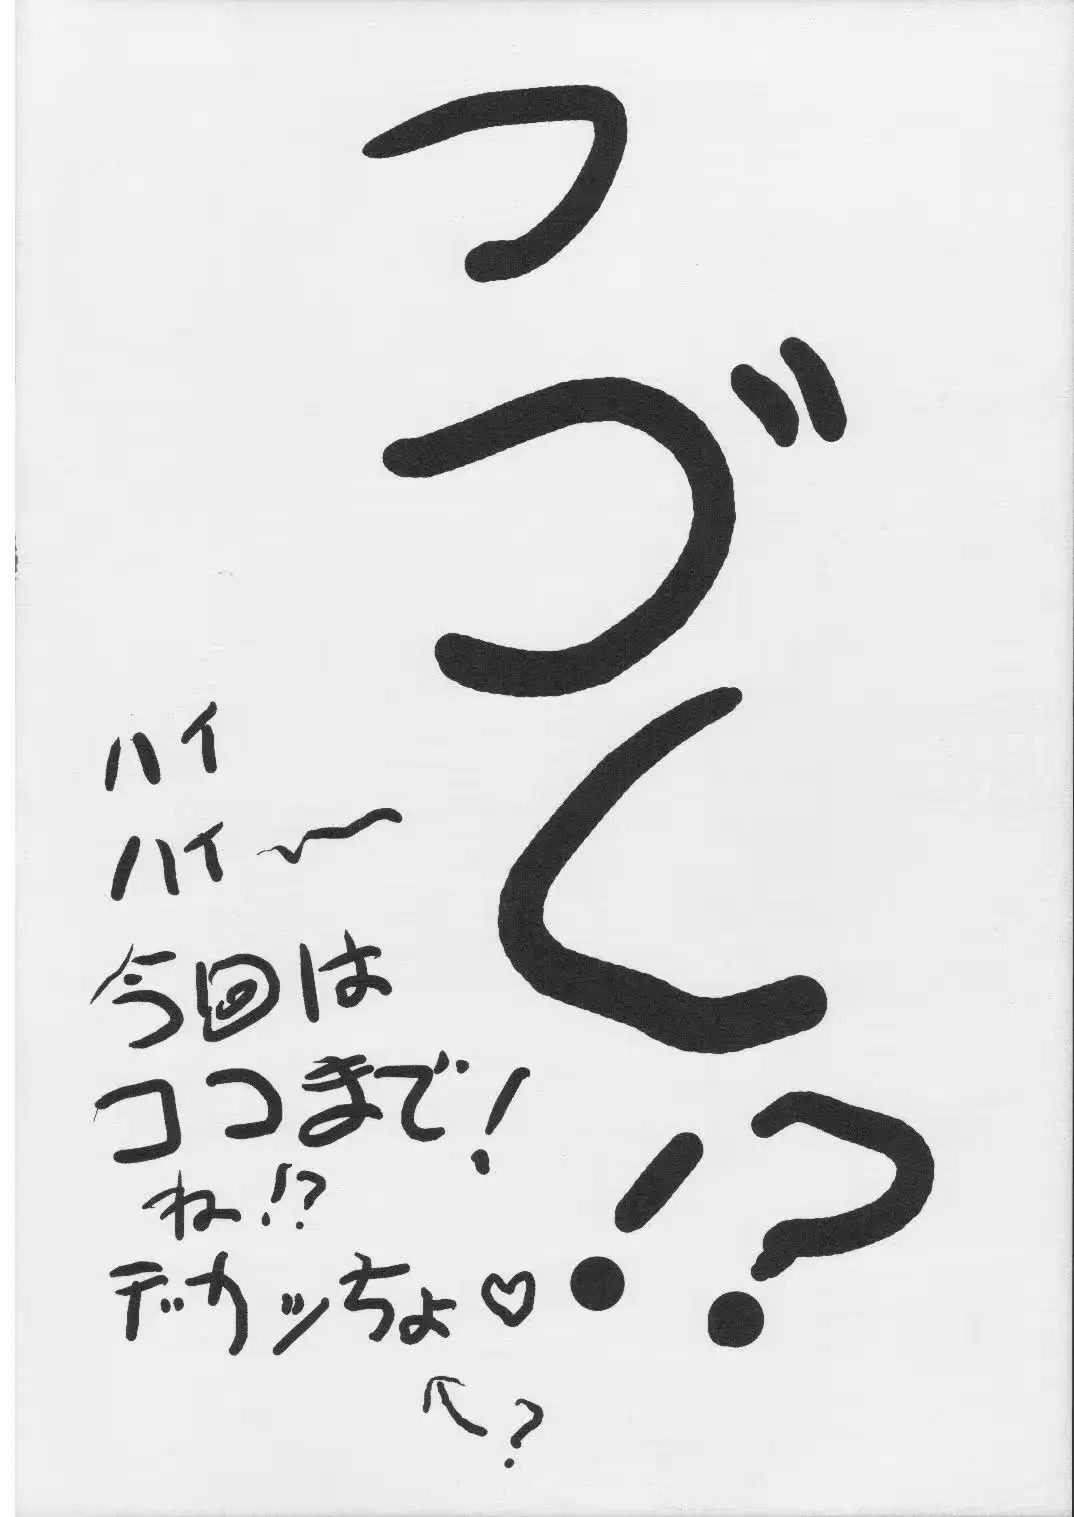 つづく!?
ハイ
ハイ〜
今回は
ココまで!
ね!?
デカッちょ♡
↑?